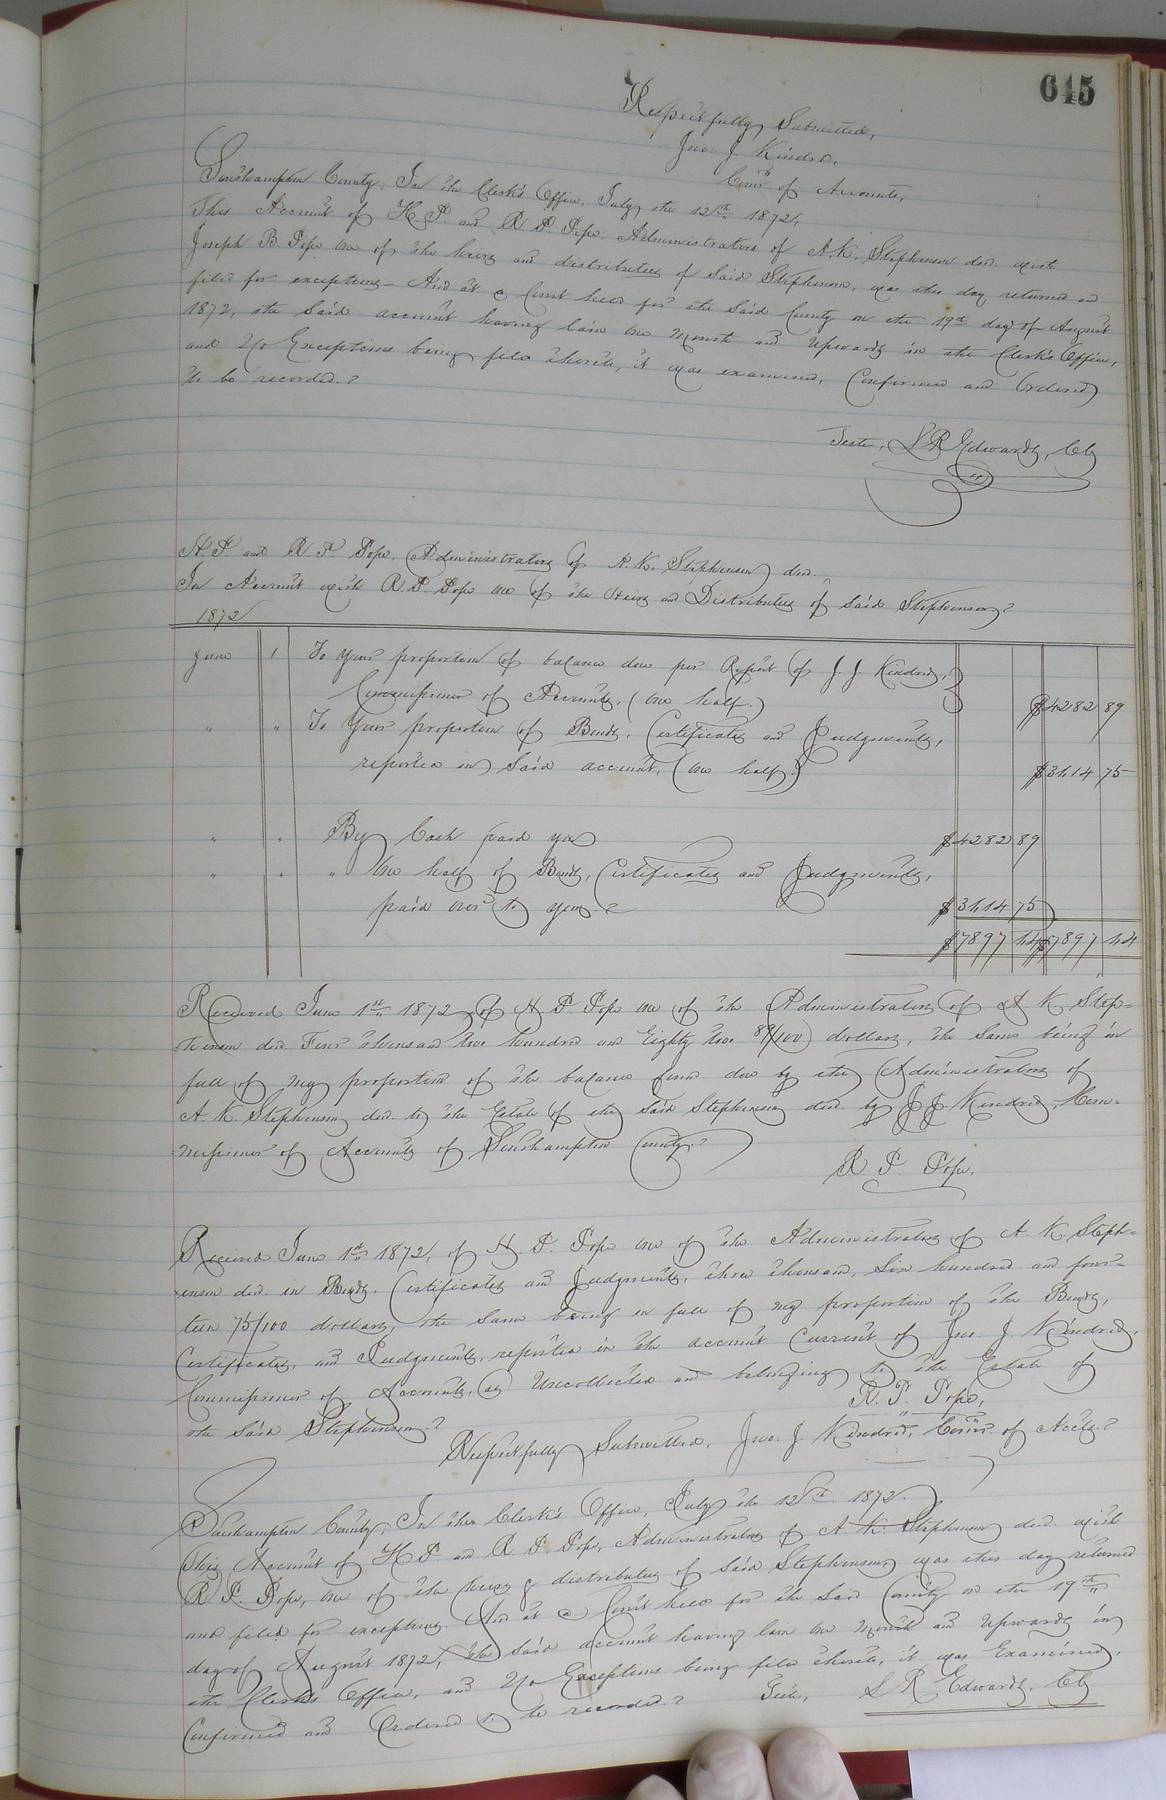 645
Respectfully Submitted,
Jno. J. Kindred,
Comr. of Accounts,
Southampton County, In the Clerk's Office, July the 12th 1872,
This Account of H. P. and R. P. Pope, Administrators of A. K. Stephenson decd. with
Joseph B. Pope one of the heirs and distributees of Said Stephenson, was this day returned and
filed for exceptions - And at a Court held for the Said County on the 19th day of August
1872, the Said account having lain one Month and Upwards in the Clerk's Office,
and No Exceptions being filed thereto, it was examined, Confirmed and Ordered
to be recorded.
Teste, L R Edwards, Clk
H. P. and R. P. Pope, Administrators of A. K. Stephenson decd.
In Account with R. P. Pope one of the Heirs and Distributees of Said Stephenson
1872
June 1 To Your proportion of balance due per Report of J. J. Kindred,
Commissioner of Accounts, (one half.) $4282 89
" " To Your proportion of Bonds, Certificates and Judgments,
reported in Said account, (one half) $3614 75
" " By Cash paid you $4282 89
" " " One half of Bonds, Certificates and Judgments,
paid over to you. $3614 75
$7897 64 $7897 64
Received June 1st 1872 of H P Pope one of the Administrators of A K Step=
henson decd Four thousand two hundred and Eighty two 89/100 dollars, the Same being in
full of my proportion of the balance found due by the Administrators of
A. K. Stephenson decd. to the Estate of the Said Stephenson decd. by J J. Kindred, Com=
missioner of Accounts of Southampton County.
R. P. Pope.
Received June 1st 1872, of H. P. Pope one of the Administrators of A. K. Steph=
enson decd. in Bonds, Certificates and Judgments, three thousand, Six hundred and four=
teen 75/100 dollars, the Same being in full of my proportion of the Bonds,
Certificates, and Judgments, reported in the account Current of Jno. J. Kindred,
Commissioner of Accounts, as Uncollected and belonging to the Estate of
the Said Stephenson.
R. P. Pope,
Respectfully Submitted, Jno. J. Kindred, Comr. of Accts.
Southampton County, In the Clerk's Office, July the 12th 1872.
This Account of H P and R. P. Pope, Administrators of A K. Stephenson decd. with
R P. Pope, one of the heirs & distributees of Said Stephenson, was this day returned
and filed for exceptions. And at a Court held for the Said County on the 19th
day of August 1872, the Said account having lain one Month and Upwards in
the Clerks Office, and No Exceptions being filed thereto, it was Examined,
Confirmed and Ordered to be recorded. Teste, L R Edwards, Clk